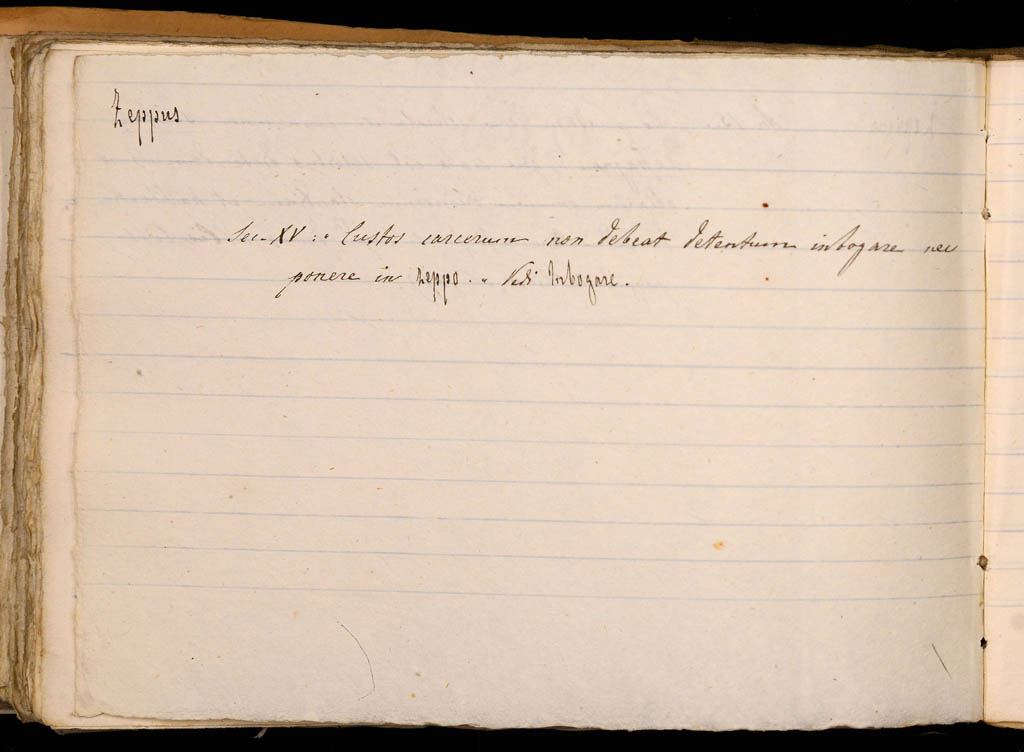 Zeppus
Sec. XV: " Custos carcerum non debeat detentum inbogare nec
ponere in zeppo. " Vedi Inbogare.